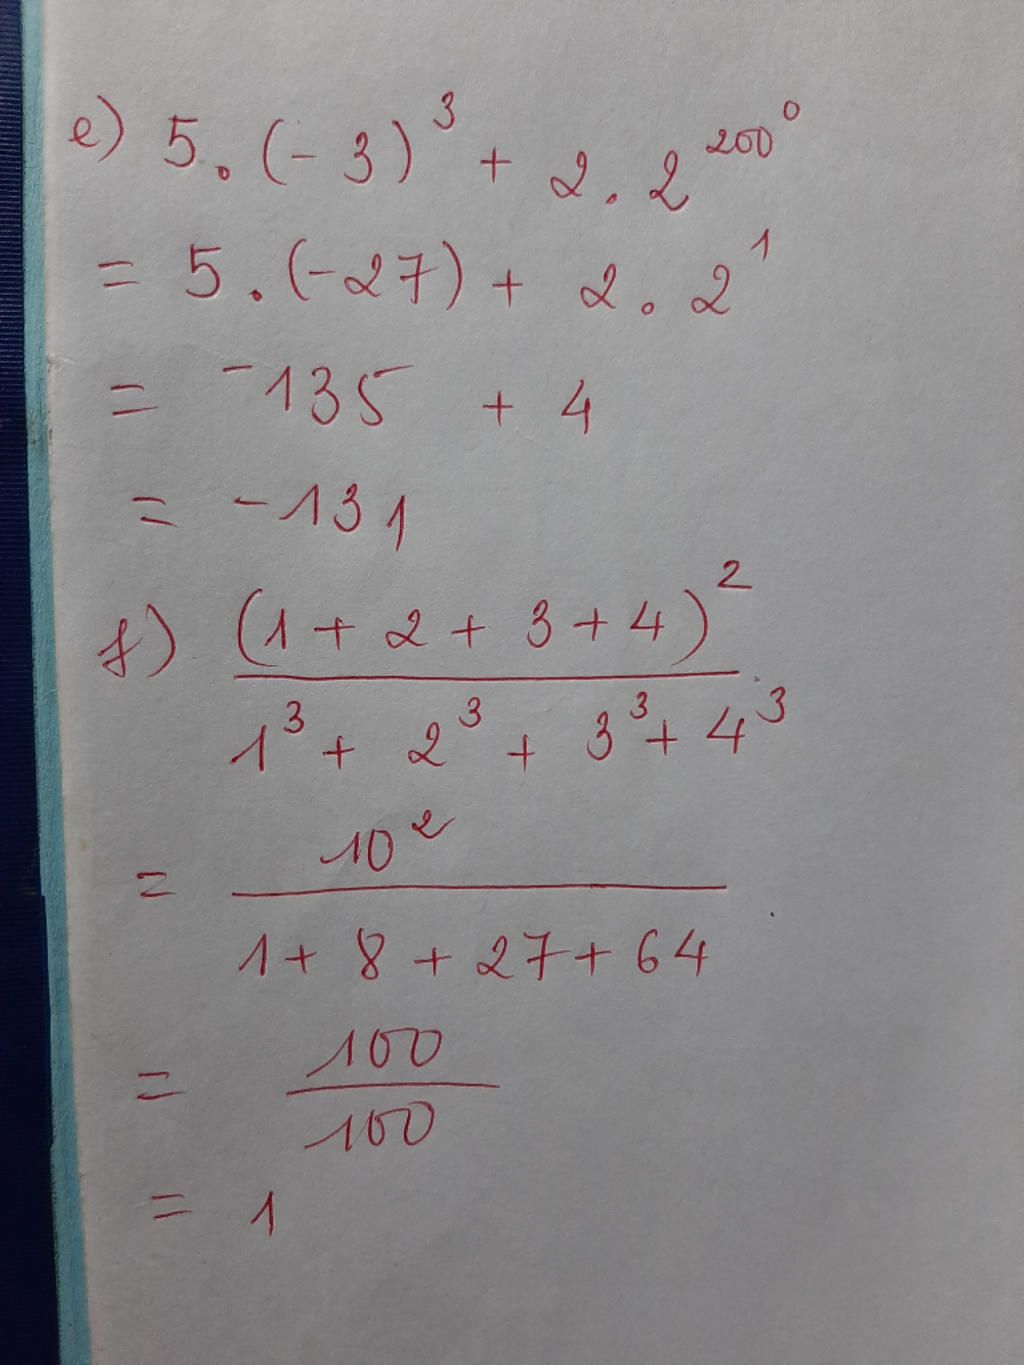 e) 5.(-3)³ + 2.2^200^0
= 5.(-27) + 2.2¹
= -135 + 4
= -131
f) (1+2+3+4)²
1³ + 2³ + 3³ + 4³
= 10²
1+8+27+64
= 100
100
= 1